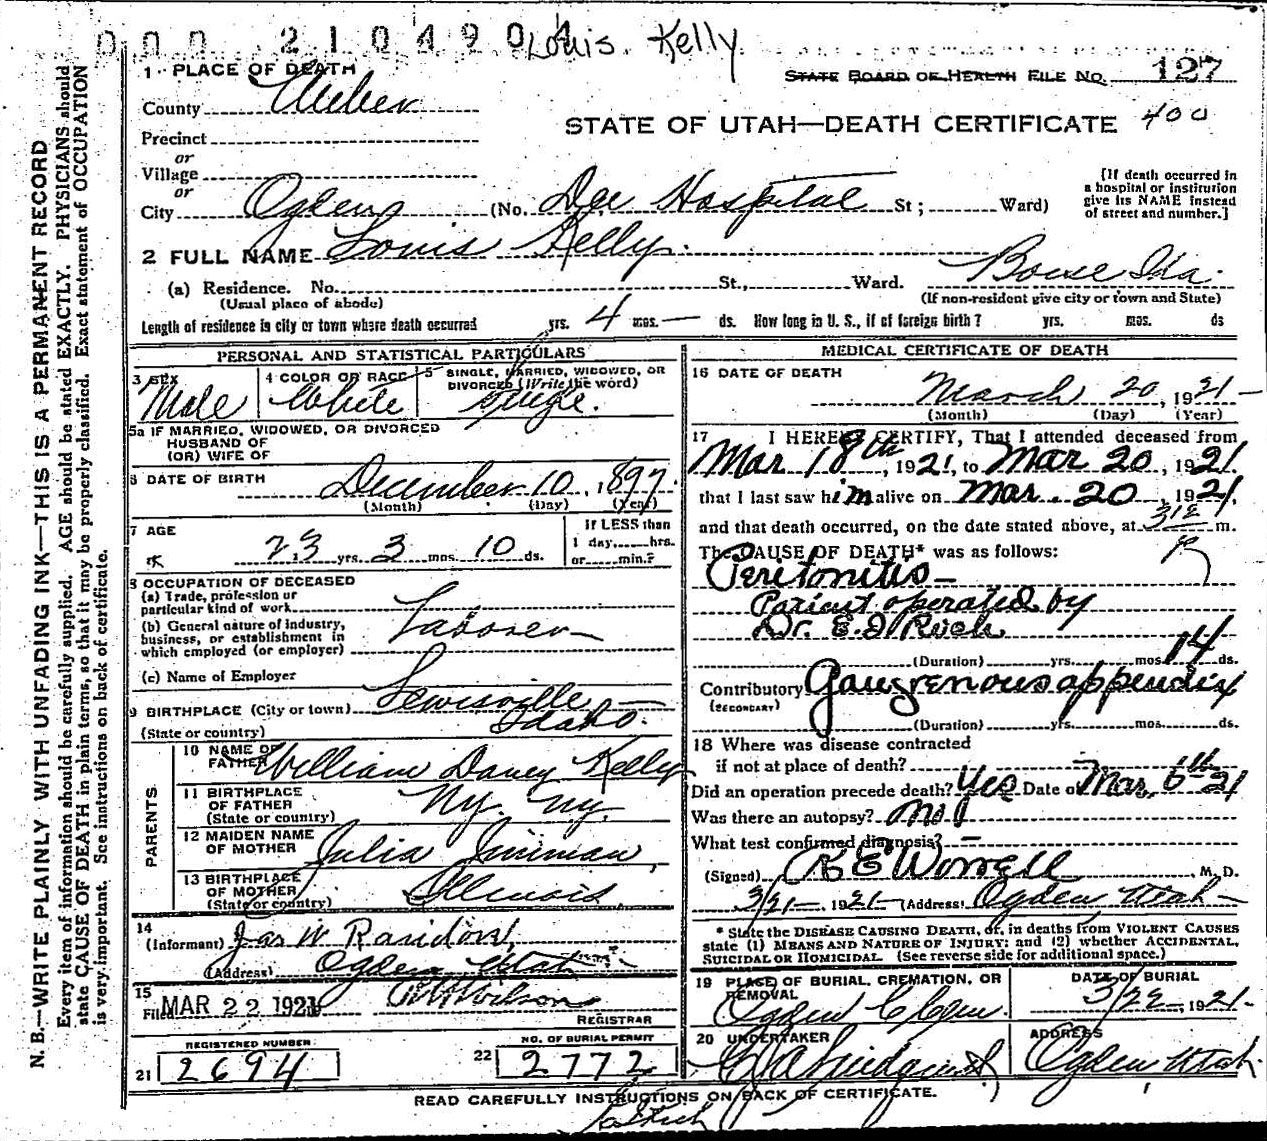 000 210490
Louis Kelly
1 PLACE OF DEATH
STATE BOARD OF HEALTH FILE NO. 127
County Weber
STATE OF UTAH—DEATH CERTIFICATE 400
Precinct
or
Village
or
City Ogden (No. Dee Hospital St; Ward)
[If death occurred in
a hospital or institution
give its NAME instead
of street and number.]
2 FULL NAME Louis Kelly.
(a) Residence. No. St., Ward. Boise Ida.
(Usual place of abode) (If non-resident give city or town and State)
Length of residence in city or town where death occurred yrs. 4 mos. — ds. How long in U. S., if of foreign birth? yrs. mos. ds
PERSONAL AND STATISTICAL PARTICULARS
3 SEX Male
4 COLOR OR RACE White
5 SINGLE, MARRIED, WIDOWED, OR
DIVORCED (Write the word)
Single.
5a IF MARRIED, WIDOWED, OR DIVORCED
HUSBAND OF
(OR) WIFE OF
6 DATE OF BIRTH December 10, 1897.
(Month) (Day) (Year)
7 AGE
23 yrs. 3 mos. 10 ds.
If LESS than
1 day, hrs.
or min.?
8 OCCUPATION OF DECEASED
(a) Trade, profession or
particular kind of work
(b) General nature of industry,
business, or establishment in
which employed (or employer)
Laborer
(c) Name of Employer
9 BIRTHPLACE (City or town) Lewisville —
(State or country) Idaho.
PARENTS
10 NAME OF
FATHER William Dancy Kelly
11 BIRTHPLACE
OF FATHER
(State or country)
Ny. Ny.
12 MAIDEN NAME
OF MOTHER Julia
13 BIRTHPLACE
OF MOTHER
(State or country)
Illinois
14
(Informant) Jas W
(Address) Ogden Utah
15
Filed MAR 22 1921 Wilson
REGISTRAR
REGISTERED NUMBER
21 2694
NO. OF BURIAL PERMIT
22 2772
MEDICAL CERTIFICATE OF DEATH
16 DATE OF DEATH
March 20, 1921
(Month) (Day) (Year)
17 I HEREBY CERTIFY, That I attended deceased from
Mar 18th, 1921, to Mar 20, 1921.
that I last saw him alive on Mar. 20, 1921,
and that death occurred, on the date stated above, at m.
The CAUSE OF DEATH* was as follows:
Peritonitis —
Patient operated by
Dr. E.I. Rich
(Duration) yrs. mos. 14 ds.
Contributory Gangrenous appendix
(SECONDARY)
(Duration) yrs. mos. ds.
18 Where was disease contracted
if not at place of death?
Did an operation precede death? Yes Date of Mar. 6th 21
Was there an autopsy? no
What test confirmed diagnosis? —
(Signed) R E Worrell, M. D.
3/21—, 1921— (Address) Ogden Utah
* State the DISEASE CAUSING DEATH, or, in deaths from VIOLENT CAUSES
state (1) MEANS AND NATURE OF INJURY; and (2) whether ACCIDENTAL,
SUICIDAL OR HOMICIDAL. (See reverse side for additional space.)
19 PLACE OF BURIAL, CREMATION, OR
REMOVAL
Ogden
DATE OF BURIAL
3/22, 1921
20 UNDERTAKER
ADDRESS
Ogden Utah
READ CAREFULLY INSTRUCTIONS ON BACK OF CERTIFICATE.
N. B.—WRITE PLAINLY WITH UNFADING INK—THIS IS A PERMANENT RECORD
Every item of information should be carefully supplied. AGE should be stated EXACTLY. PHYSICIANS should
state CAUSE OF DEATH in plain terms, so that it may be properly classified. Exact statement of OCCUPATION
is very important. See instructions on back of certificate.